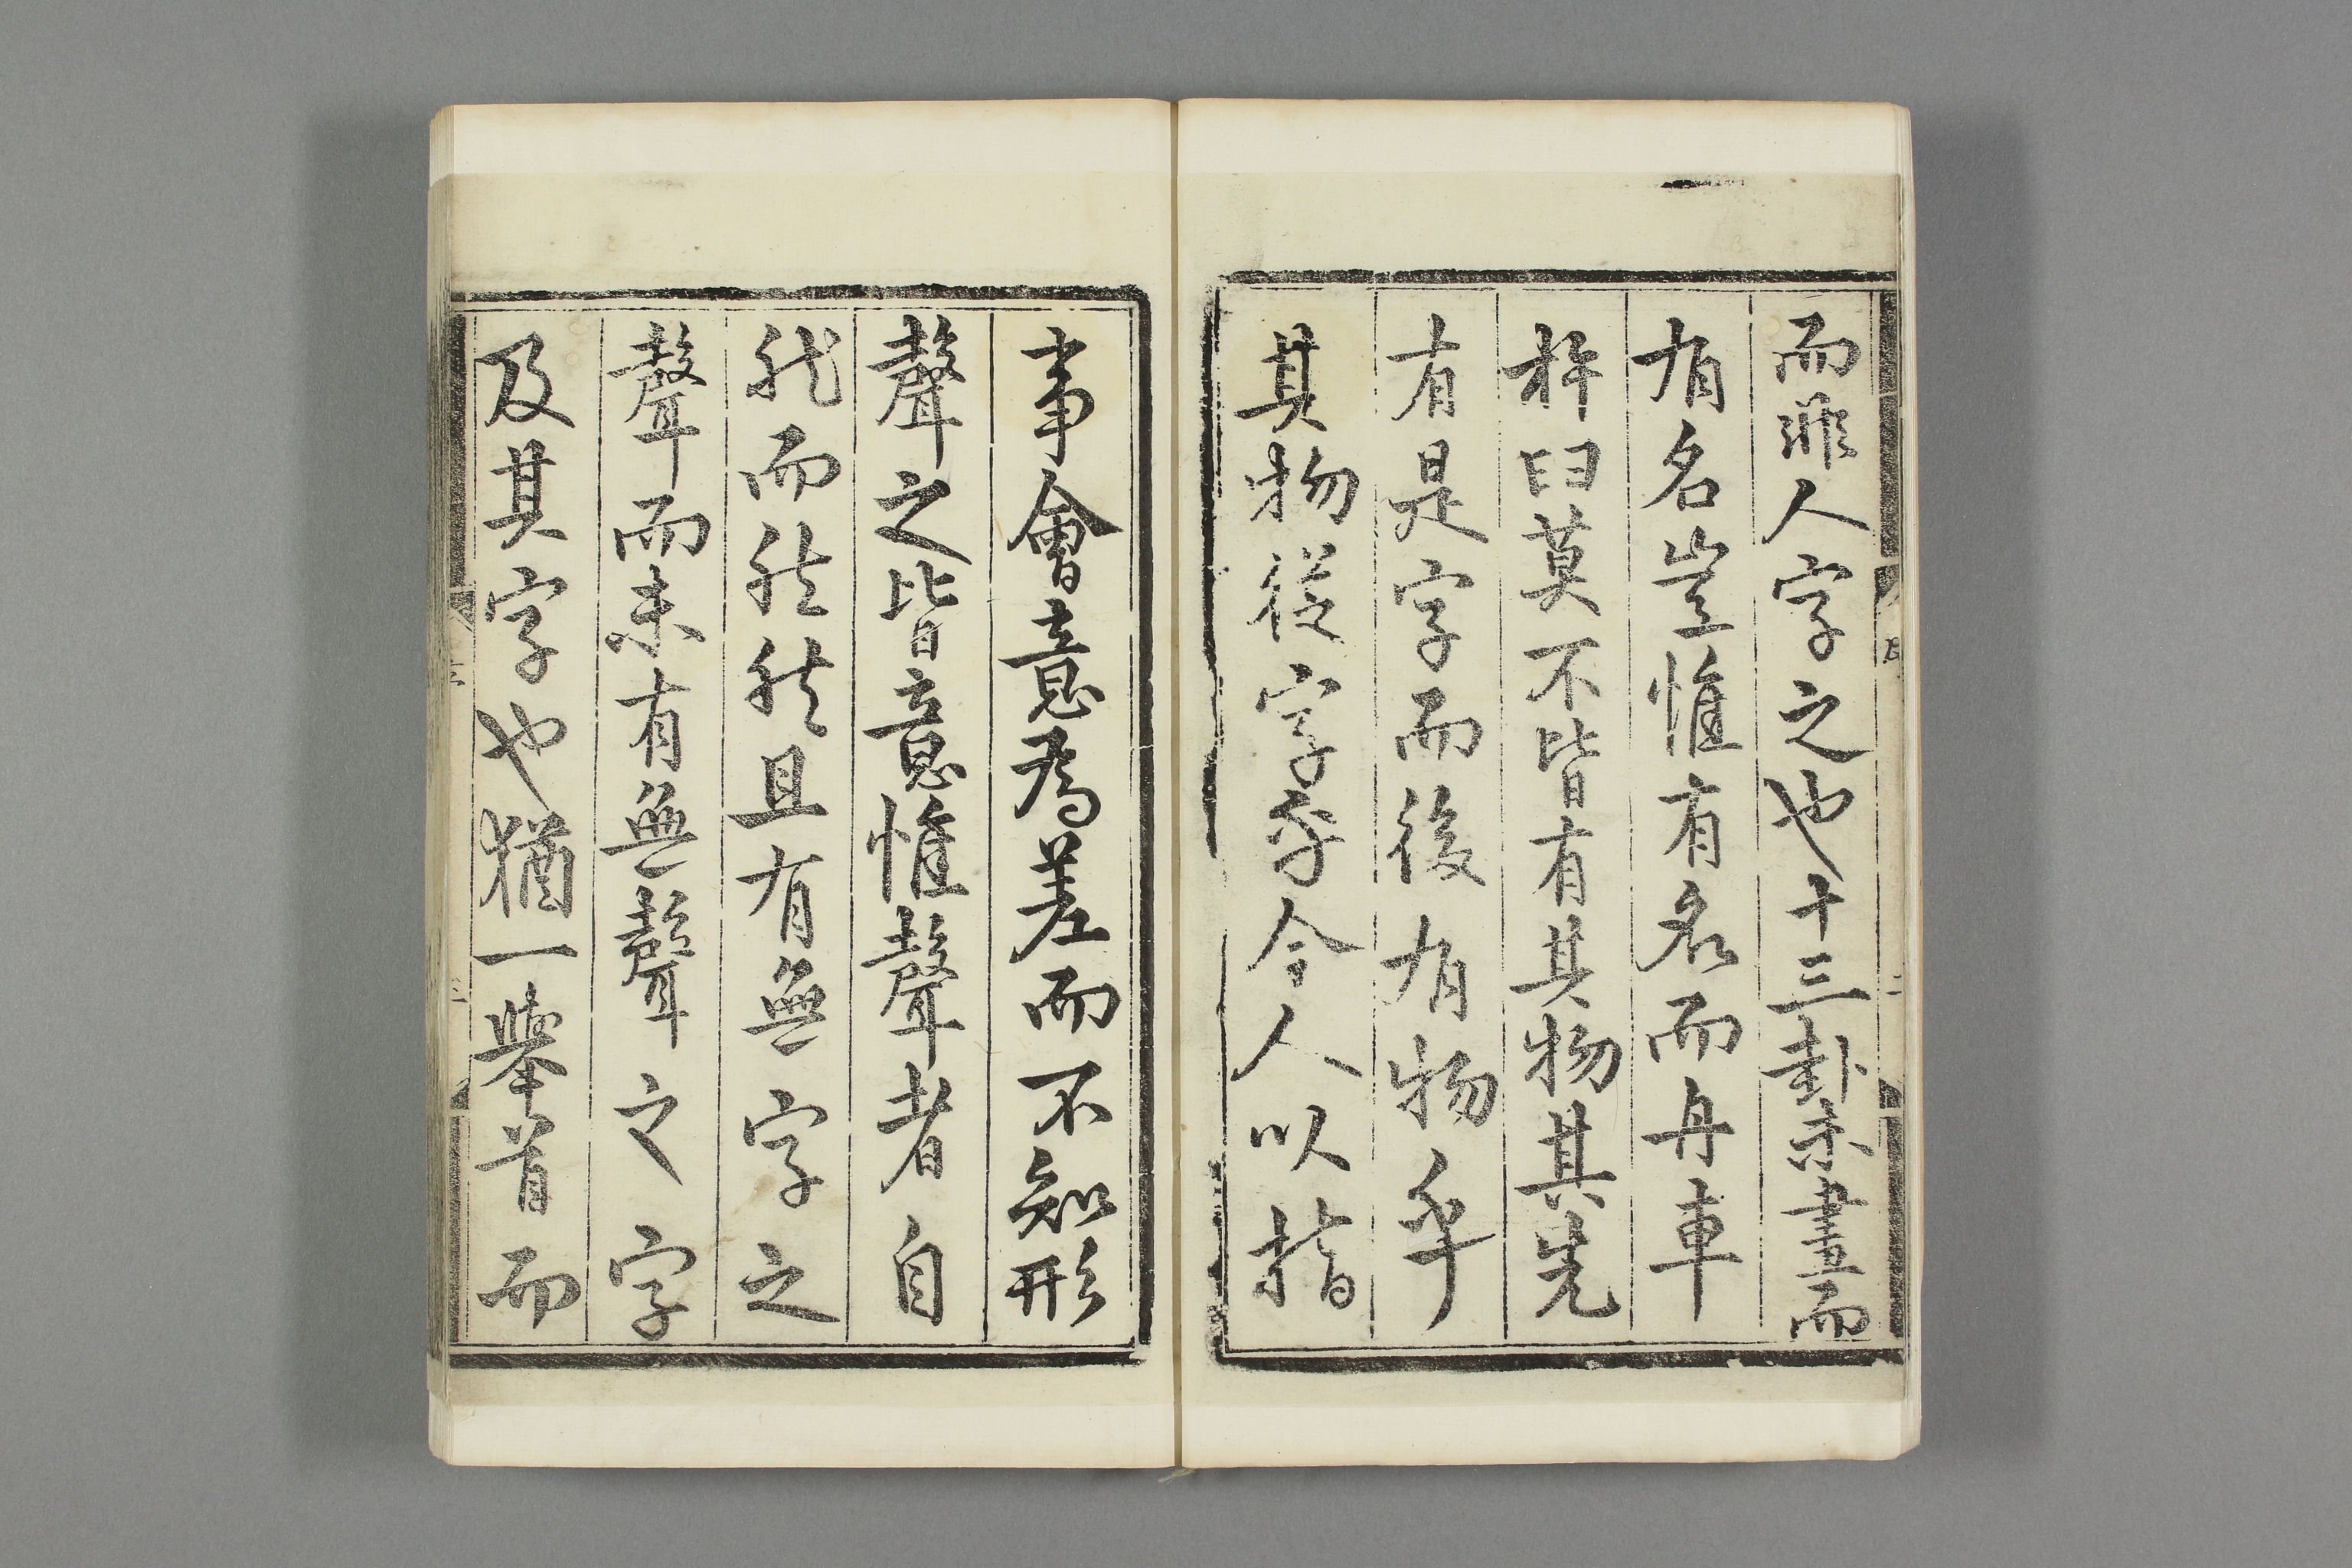 而雖人字之也十三卦未畫而
有名豈惟有名而舟車
杵臼莫不皆有其物其先
有是字而後有物乎
其物從字乎今人以指
事會意為差而不知形
聲之皆意惟聲者自
然而然然且有無字之
聲而未有無聲之字
及其字也猶一舉首而